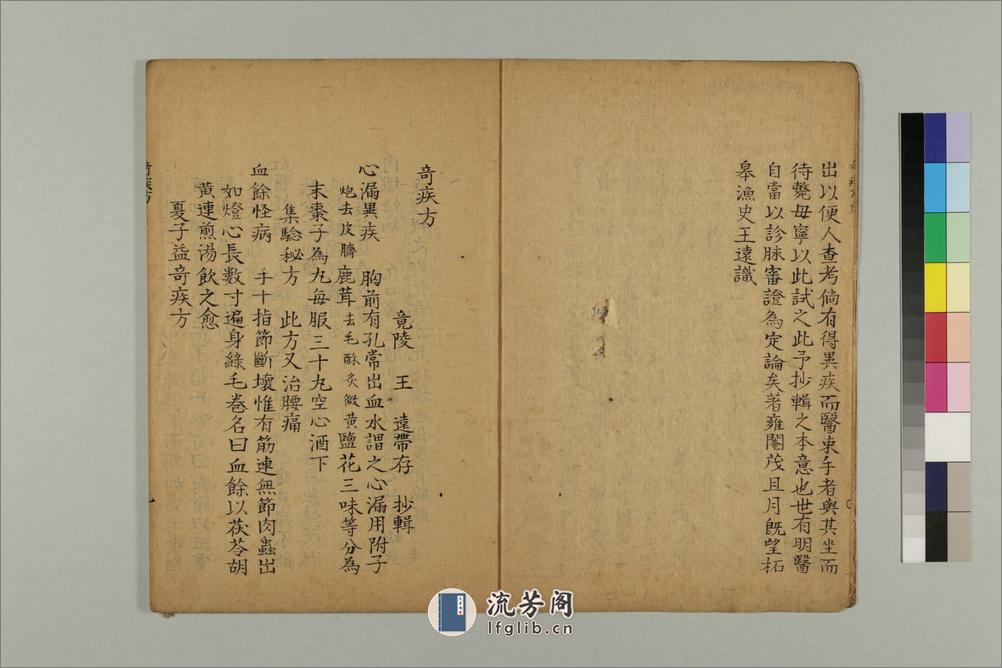 出以便人查考倘有得異疾而醫束手者與其坐而
待斃毋寧以此試之此予抄輯之本意也世有明醫
自當以診脉審證為定論矣著雍閹茂且月既望柘
皋漁史王遠識
奇疾方
竟陵 王 遠帶存 抄輯
心漏異疾 胸前有孔常出血水謂之心漏用附子
炮去皮臍鹿茸去毛酥炙微黄鹽花三味等分為
末棗子為丸每服三十丸空心酒下
集驗秘方 此方又治腰痛
血餘怪病 手十指節斷壞惟有筋連無節肉蟲出
如燈心長數寸遍身綠毛卷名曰血餘以茯苓胡
黄連煎湯飲之愈
夏子益奇疾方
奇疾方
一
流芳阁
lfglib.cn